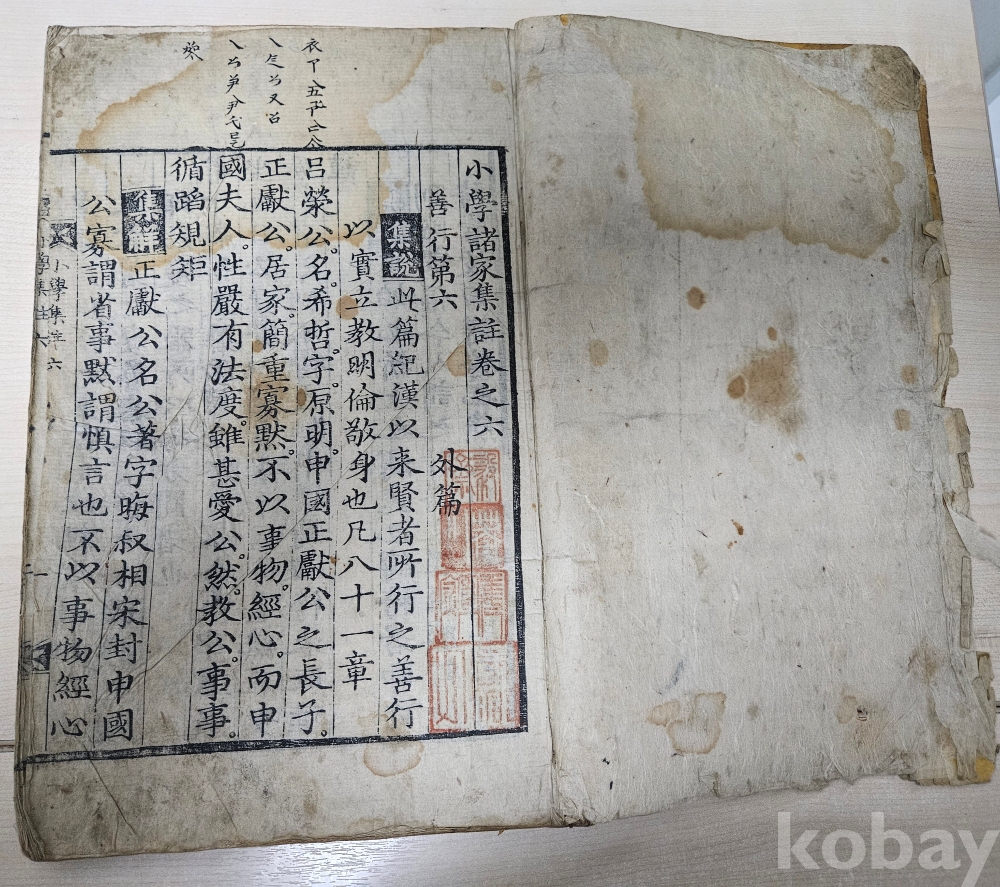 小學諸家集註卷之六
善行第六　外篇
集說 此篇紀漢以来賢者所行之善行
以實立教明倫敬身也凡八十一章
呂滎公。名。希哲。字。原明。申國正獻公之長子。
正獻公。居家。簡重寡默。不以事物。經心。而申
國夫人。性嚴有法度。雖甚愛公。然。教公。事事。
循蹈規矩
集解 正獻公名公著字晦叔相宋封申國
公寡謂省事黙謂慎言也不以事物經心
小學集註 六
kobay